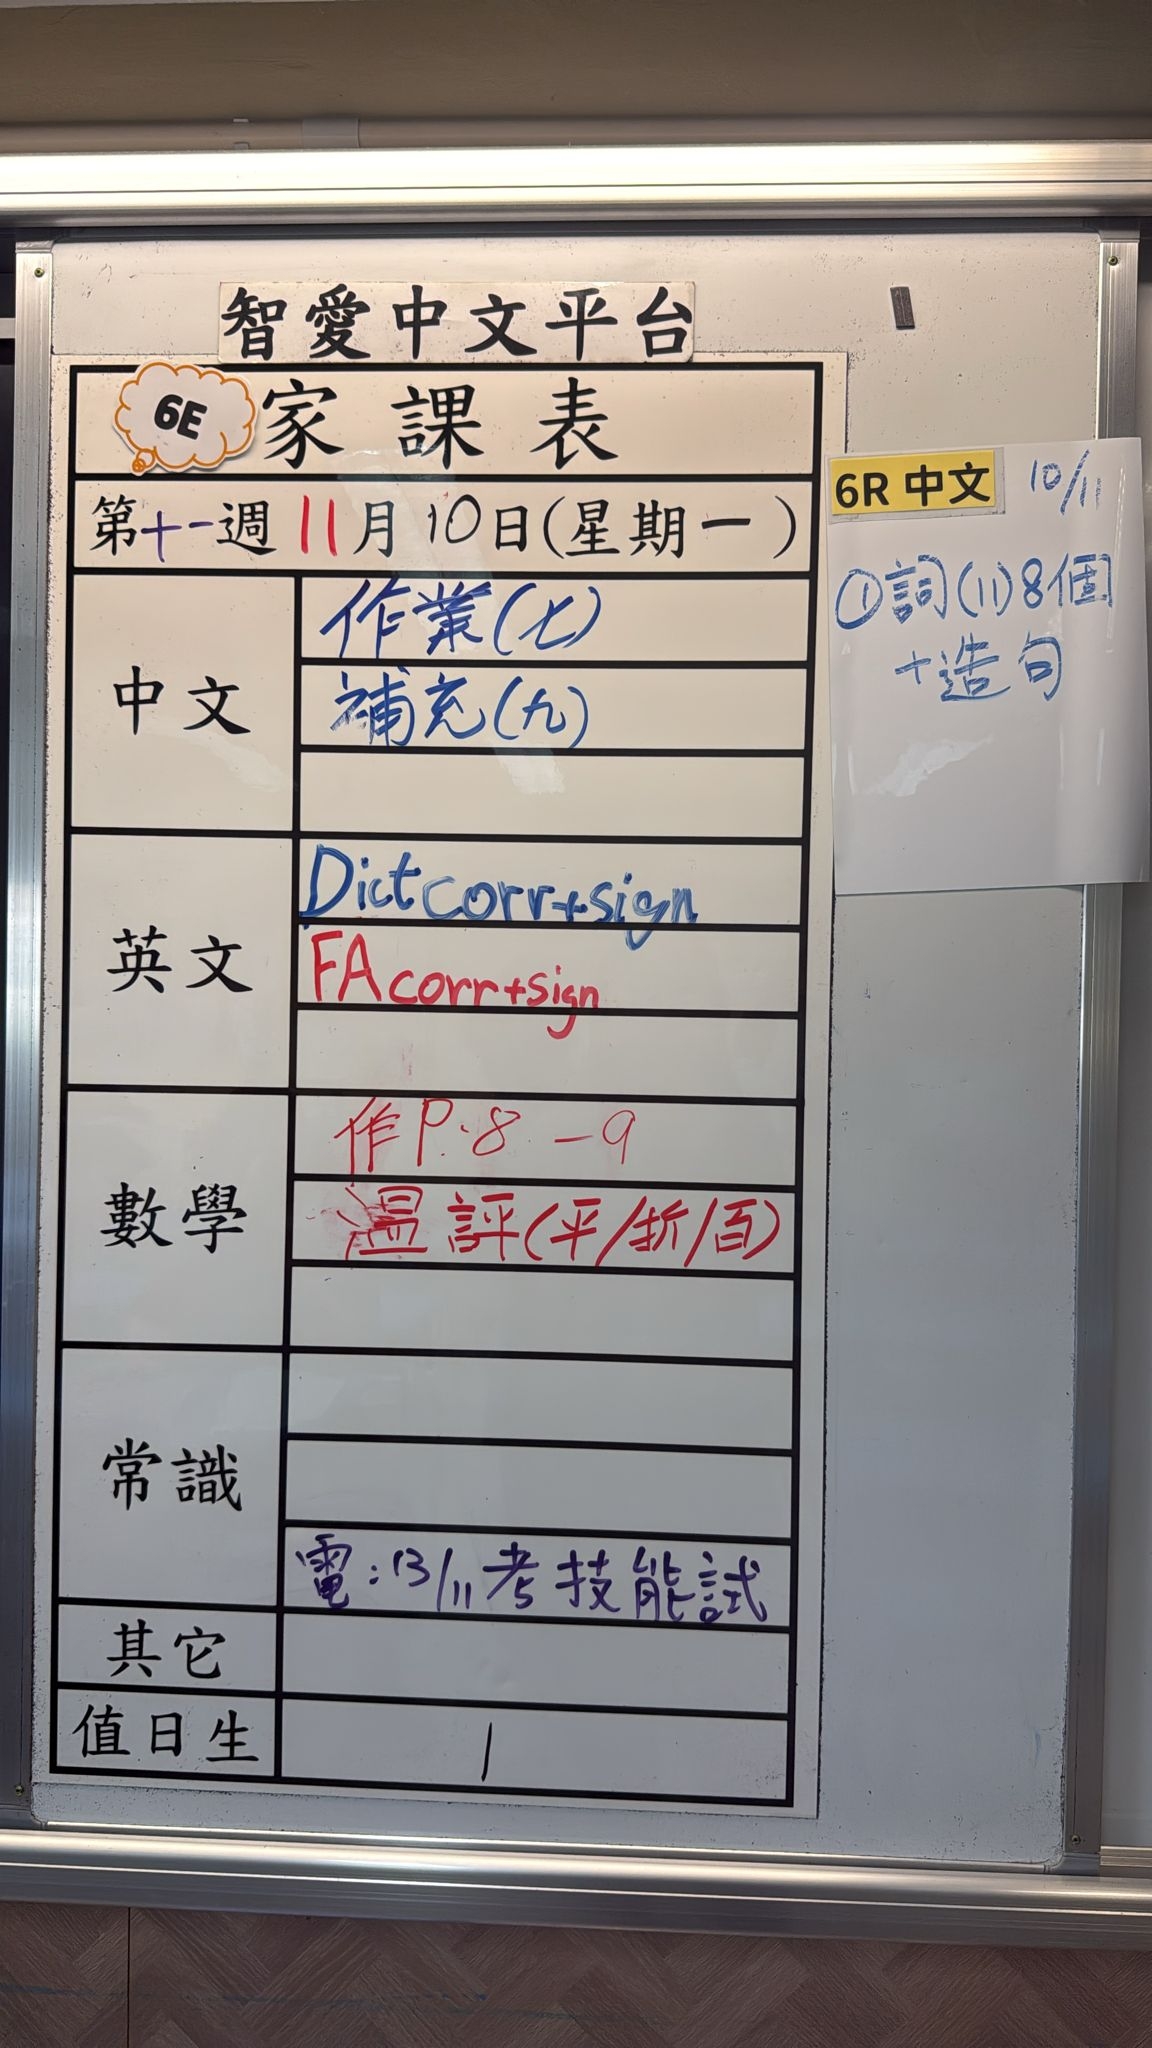 智愛中文平台
6E 家課表
第十一週 11月10日(星期一)
中文
作業(七)
補充(九)
英文
Dict corr+sign
FA corr+sign
數學
作P.8-9
溫評(平/折/百)
常識
電:13/11考技能試
其它
值日生
1
6R 中文 10/11
①詞(11)8個
+造句